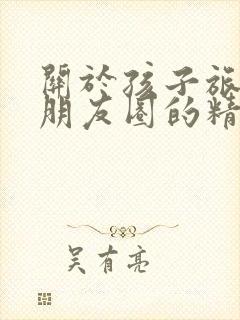 關於孩子旅
朋友圈的精
吴有亮